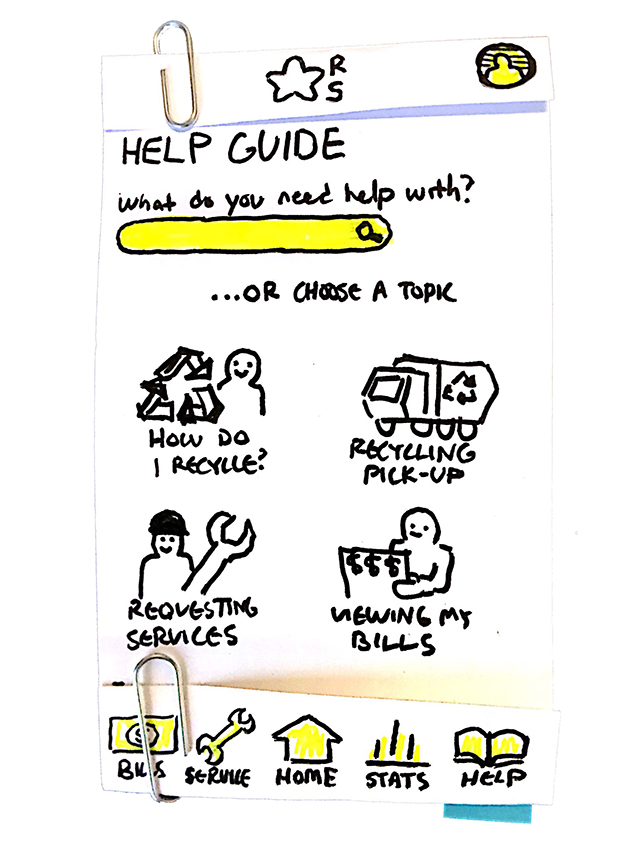 R
S
HELP GUIDE
what do you need help with?
...OR CHOOSE A TOPIC
HOW DO
I RECYCLE?
RECYCLING
PICK-UP
REQUESTING
SERVICES
VIEWING MY
BILLS
$
$ $ $
BILLS
SERVICE
HOME
STATS
HELP